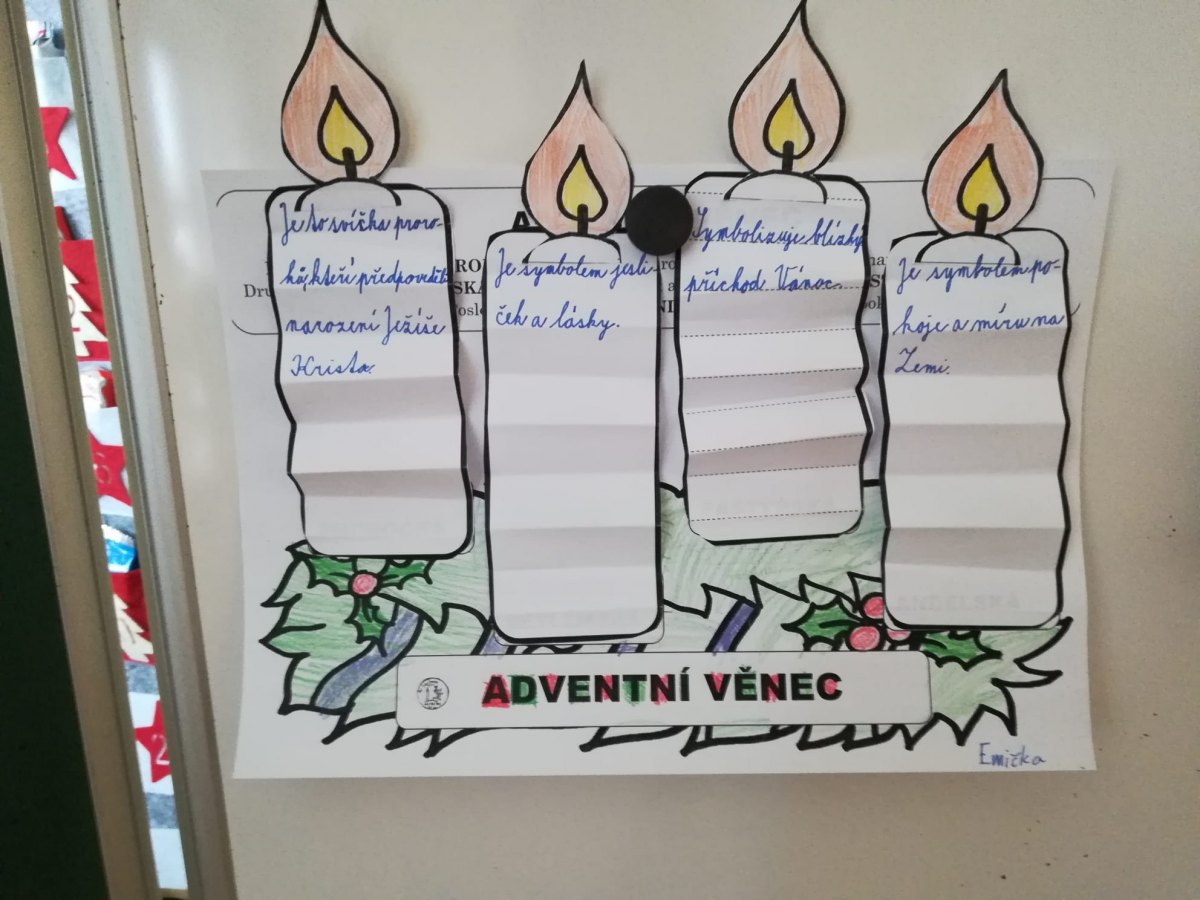 Je to svíčka proro-
ků, kteří předpověděli
narození Ježíše
Krista.
Je symbolem jesli-
ček a lásky.
Symbolizuje blízký
příchod Vánoc.
Je symbolem po-
koje a míru na
Zemi.
ADVENTNÍ VĚNEC
Emička